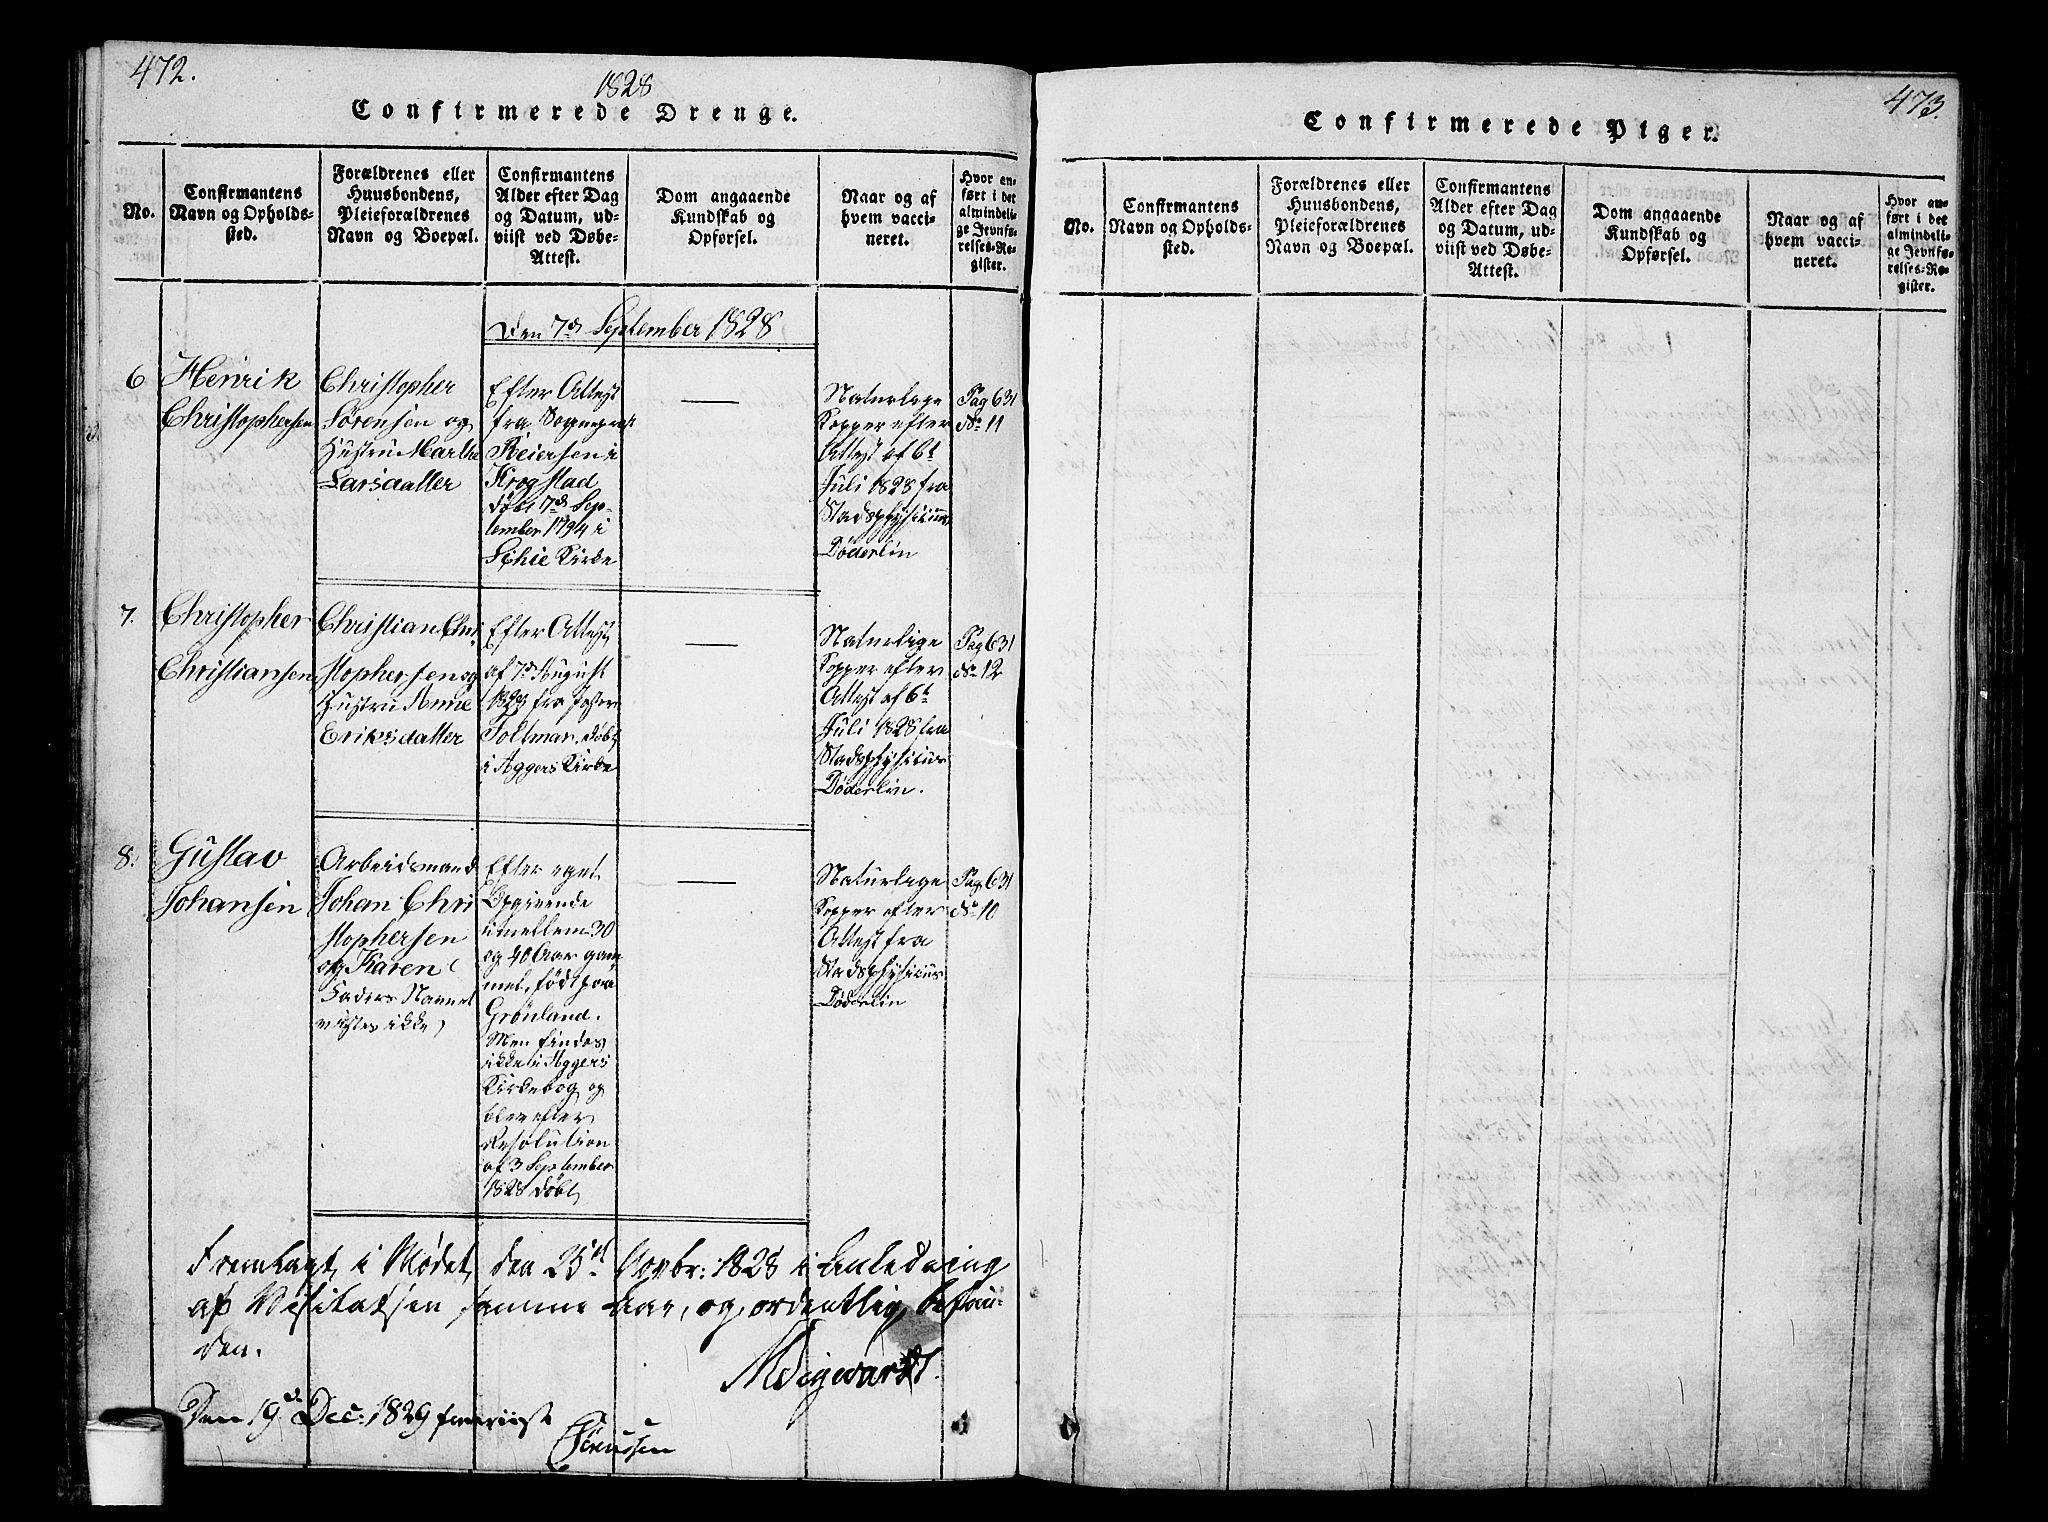 472.
1828
Confirmerede Drenge.
No.
Confirmantens
Navn og Opholds-
sted.
Forældrenes eller
Huusbondens,
Pleieforældrenes
Navn og Boepæl.
Confirmantens
Alder efter Dag
og Datum, ud-
viist ved Døbe-
Attest.
Dom angaaende
Kundskab og
Opførsel.
Naar og af
hvem vacci-
neret.
Hvor an-
ført i det
almindeli-
ge Jevnfø-
relses-Re-
gister.
Den 7de September 1828
6
Henrik
Christophersen
Christopher
Sørensen og
Hustru Marthe
Larsdatter
Efter Attest
fra Sognepræst
Reiersen i
Krogstad
døbt 7de Sep-
tember 1794 i
Schie Kirke
Naturlige
Kopper efter
Attest af 6t
Juli 1828 fra
Stadsphysicus
Døderlin
Pag 631
No 11
7.
Christopher
Christiansen
Christian Chri-
stophersen og
Hustru Anne
Eriksdatter
Efter Attest
af 7de August
1828 fra Pastor
Toltman, døbt
i Aggers Kirke
Naturlige
Kopper efter
Attest af 6t
Juli 1828 fra
Stadsphysicus
Døderlin.
Pag 631
No 12
8.
Gustav
Johansen
Arbeidsmand
Johan Chri
stophersen
og Karen (
Faders Navnet
vistes ikke)
Efter eget
Opgivende
imellem 30
og 40 Aar gam
mel, født paa
Grønland.
Men findes
ikke i Aggers
Kirkebog og
blev efter
Resolution
af 3 September
1828 døbt
Naturlige
Kopper efter
Attest fra
Stadsphysicus
Døderlin
Pag 631
No 10
Fremlagt i Mødet den 25de Novbr: 1828 i Anledning
af Visitatsen samme Aar, og ordentlig befun-
den.
Den 19de Dec: 1829 foreviist
Sørenssen
473.
Confirmerede Piger.
No.
Confirmantens
Navn og Opholds-
sted.
Forældrenes eller
Huusbondens,
Pleieforældrenes
Navn og Boepæl.
Confirmantens
Alder efter Dag
og Datum, ud-
viist ved Døbe-
Attest.
Dom angaaende
Kundskab og
Opførsel.
Naar og af
hvem vacci-
neret.
Hvor an-
ført i det
almindeli-
ge Jevnfø-
relses-Re-
gister.